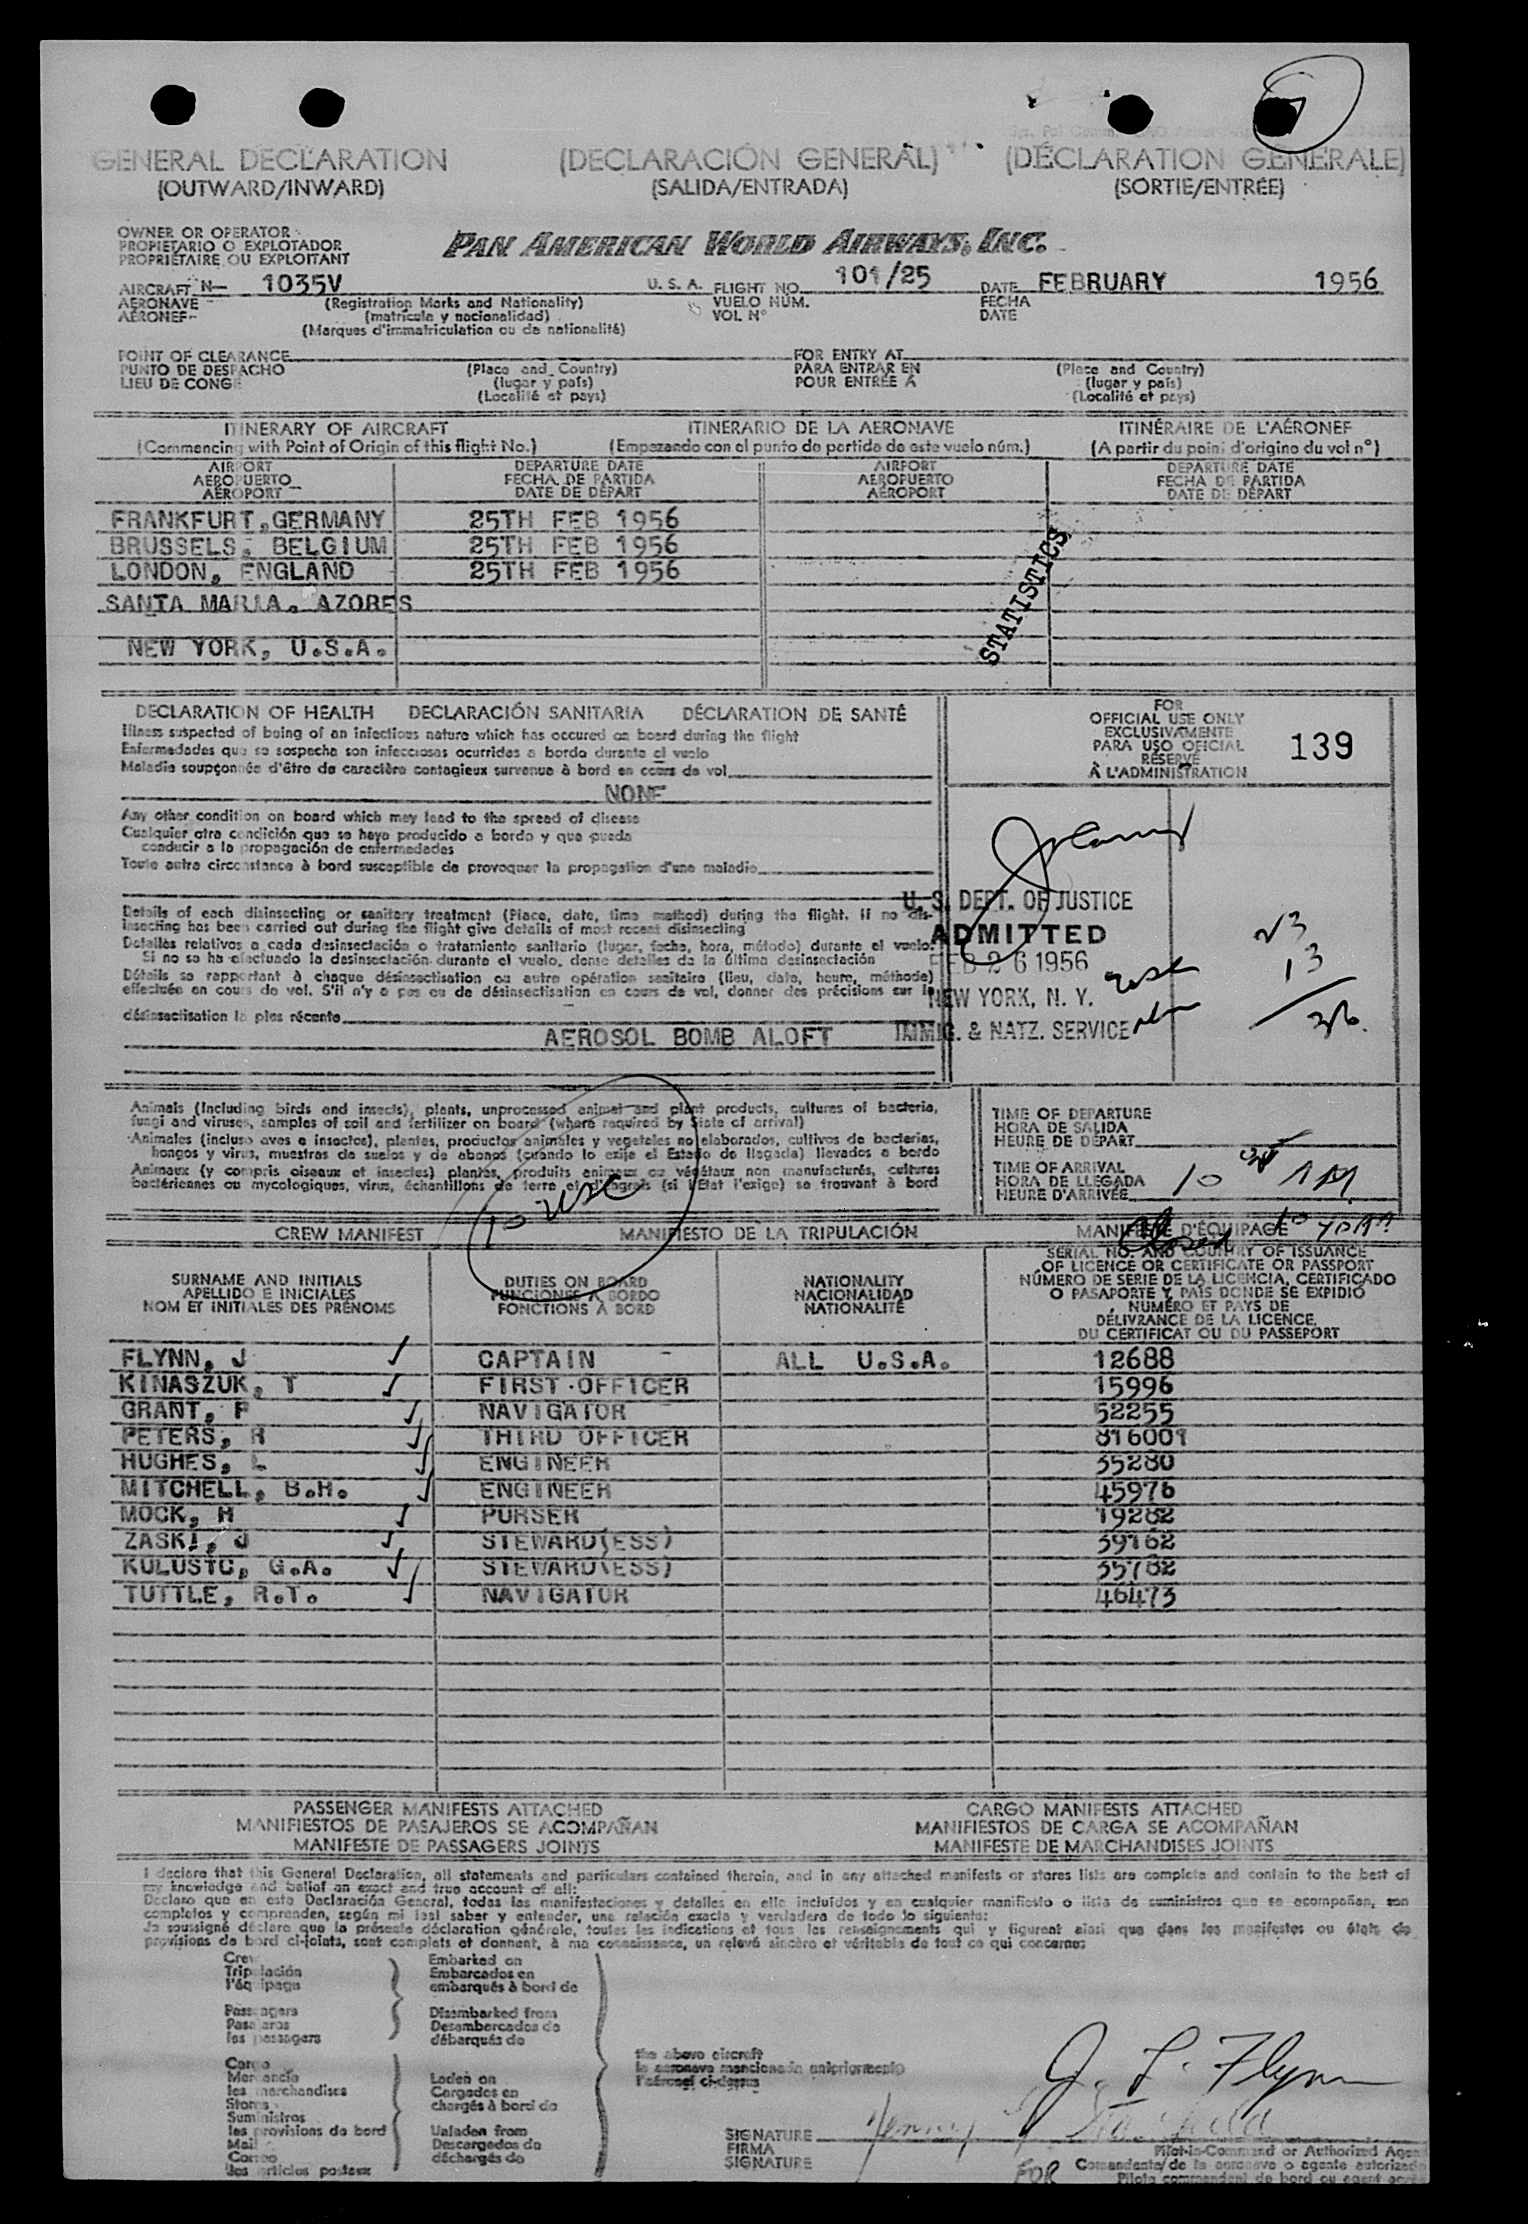 GENERAL DECLARATION (DECLARACIÓN GENERAL) (DÉCLARATION GÉNÉRALE)
(OUTWARD/INWARD) (SALIDA/ENTRADA) (SORTIE/ENTRÉE)
OWNER OR OPERATOR
PROPIETARIO O EXPLOTADOR
PROPRIÉTAIRE OU EXPLOITANT
PAN AMERICAN WORLD AIRWAYS, INC.
AIRCRAFT N- 1035V U. S. A. FLIGHT NO. 101/25 DATE FEBRUARY 1956
AERONAVE (Registration Marks and Nationality) VUELO NÚM. FECHA
AÉRONEF (matrícula y nacionalidad) VOL N° DATE
(Marques d'immatriculation ou de nationalité)
POINT OF CLEARANCE FOR ENTRY AT
PUNTO DE DESPACHO (Place and Country) PARA ENTRAR EN (Place and Country)
LIEU DE CONGÉ (lugar y país) POUR ENTRÉE À (lugar y país)
(Localité et pays) (Localité et pays)
ITINERARY OF AIRCRAFT ITINERARIO DE LA AERONAVE ITINÉRAIRE DE L'AÉRONEF
(Commencing with Point of Origin of this flight No.) (Empezando con el punto de partida de este vuelo núm.) (A partir du point d'origine du vol n°)
AIRPORT DEPARTURE DATE AIRPORT DEPARTURE DATE
AEROPUERTO FECHA DE PARTIDA AEROPUERTO FECHA DE PARTIDA
AÉROPORT DATE DE DÉPART AÉROPORT DATE DE DÉPART
FRANKFURT, GERMANY 25TH FEB 1956
BRUSSELS, BELGIUM 25TH FEB 1956
LONDON, ENGLAND 25TH FEB 1956
SANTA MARIA, AZORES
NEW YORK, U.S.A.
STATISTICS
DECLARATION OF HEALTH DECLARACIÓN SANITARIA DÉCLARATION DE SANTÉ
Illness suspected of being of an infectious nature which has occured on board during the flight
Enfermedades que se sospecha son infecciosas ocurridas a bordo durante el vuelo
Maladie soupçonnée d'être de caractère contagieux survenue à bord en cours de vol
NONE
FOR
OFFICIAL USE ONLY
EXCLUSIVAMENTE
PARA USO OFICIAL
RÉSERVÉ
À L'ADMINISTRATION
139
Any other condition on board which may lead to the spread of disease
Cualquier otra condición que se haya producido a bordo y que pueda
conducir a la propagación de enfermedades
Toute autre circonstance à bord susceptible de provoquer la propagation d'une maladie
Details of each disinsecting or sanitary treatment (Place, date, time method) during the flight. If no dis-
insecting has been carried out during the flight give details of most recent disinsecting
Detalles relativos a cada desinsectación o tratamiento sanitario (lugar, fecha, hora, método) durante el vuelo.
Si no se ha efectuado la desinsectación durante el vuelo, dense detalles de la última desinsectación
Détails se rapportant à chaque désinsectisation ou autre opération sanitaire (lieu, date, heure, méthode)
effectuée en cours de vol. S'il n'y a pas eu de désinsectisation en cours de vol, donner des précisions sur la
désinsectisation la plus récente
AEROSOL BOMB ALOFT
U. S. DEPT. OF JUSTICE
ADMITTED
FEB 26 1956
NEW YORK, N. Y.
IMMIG. & NATZ. SERVICE
23
13
36
Animals (Including birds and insects), plants, unprocessed animal and plant products, cultures of bacteria,
fungi and viruses, samples of soil and fertilizer on board (where required by State of arrival)
Animales (incluso aves e insectos), plantas, productos animales y vegetales no elaborados, cultivos de bacterias,
hongos y virus, muestras de suelos y de abonos (cuando lo exija el Estado de llegada) llevados a bordo
Animaux (y compris oiseaux et insectes) plantes, produits animaux ou végétaux non manufacturés, cultures
bactériennes ou mycologiques, virus, échantillons de terre et d'engrais (si l'État l'exige) se trouvant à bord
10 USC
TIME OF DEPARTURE
HORA DE SALIDA
HEURE DE DÉPART
TIME OF ARRIVAL
HORA DE LLEGADA
HEURE D'ARRIVÉE
10 AM
CREW MANIFEST MANIFIESTO DE LA TRIPULACIÓN MANIFESTE D'ÉQUIPAGE
SURNAME AND INITIALS
APELLIDO E INICIALES
NOM ET INITIALES DES PRÉNOMS
DUTIES ON BOARD
FUNCIONES A BORDO
FONCTIONS À BORD
NATIONALITY
NACIONALIDAD
NATIONALITÉ
SERIAL NO. AND COUNTRY OF ISSUANCE
OF LICENCE OR CERTIFICATE OR PASSPORT
NÚMERO DE SERIE DE LA LICENCIA, CERTIFICADO
O PASAPORTE Y PAÍS DONDE SE EXPIDIÓ
NUMÉRO ET PAYS DE
DÉLIVRANCE DE LA LICENCE,
DU CERTIFICAT OU DU PASSEPORT
FLYNN, J CAPTAIN ALL U.S.A. 12688
KINASZUK, T FIRST OFFICER 15996
GRANT, P NAVIGATOR 52255
PETERS, R THIRD OFFICER 816001
HUGHES, L ENGINEER 35280
MITCHELL, B.H. ENGINEER 45976
MOCK, H PURSER 19282
ZASKI, J STEWARD(ESS) 39162
KULUSTC, G.A. STEWARD(ESS) 35782
TUTTLE, R.T. NAVIGATOR 46473
PASSENGER MANIFESTS ATTACHED CARGO MANIFESTS ATTACHED
MANIFIESTOS DE PASAJEROS SE ACOMPAÑAN MANIFIESTOS DE CARGA SE ACOMPAÑAN
MANIFESTE DE PASSAGERS JOINTS MANIFESTE DE MARCHANDISES JOINTS
I declare that this General Declaration, all statements and particulars contained therein, and in any attached manifests or stores lists are complete and contain to the best of
my knowledge and belief an exact and true account of all:
Declaro que en esta Declaración General, todas las manifestaciones y detalles en ella incluidos y en cualquier manifiesto o lista de suministros que se acompañan, son
completos y comprenden, según mi leal saber y entender, una relación exacta y verdadera de todo lo siguiente:
Je soussigné déclare que la présente déclaration générale, toutes les indications et tous les renseignements qui y figurent ainsi que dans les manifestes ou états de
provisions de bord ci-joints, sont complets et donnent, à ma connaissance, un relevé sincère et véritable de tout ce qui concerne:
Crew Embarked on
Tripulación Embarcados en
l'équipage embarqués à bord de
Passengers Disembarked from
Pasajeros Desembarcados de
les passagers débarqués de
the above aircraft
la aeronave mencionada anteriormente
l'aéronef ci-dessus
Cargo
Mercancía Laden on
les marchandises Cargados en
Stores chargés à bord de
Suministros
les provisions de bord Unladen from
Mail Descargados de
Correo déchargés de
les articles postaux
J. L. Flynn
SIGNATURE
FIRMA
SIGNATURE
FOR
Pilot-in-Command or Authorized Agent
Comandante de la aeronave o agente autorizado
Pilote commandant de bord ou agent